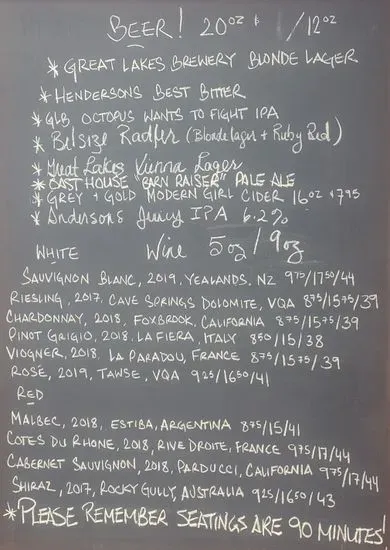 BEER! 20oz & /12oz
* GREAT LAKES BREWERY BLONDE LAGER
* HENDERSONS BEST BITTER
* GLB OCTOPUS WANTS TO FIGHT IPA
* Belsize Radler (Blonde lager + Ruby Red)
* Great Lakes Vienna Lager
* CAST HOUSE "BARN RAISER" PALE ALE
* GREY + GOLD MODERN GIRL CIDER 16oz $795
* Andersons Juicy IPA 6.2%
WHITE Wine 5oz / 9oz
SAUVIGNON BLANC, 2019, YEALANDS, NZ 975/1750/44
RIESLING, 2017, CAVE SPRINGS DOLOMITE, VQA 875/1575/39
CHARDONNAY, 2018, FOXBROOK, CALIFORNIA 875/1575/39
PINOT GRIGIO, 2018, LA FIERA, ITALY 850/15/38
VIOGNER, 2018, LA PARADOU, FRANCE 875/1575/39
ROSE, 2019, TAWSE, VQA 925/1650/41
RED
MALBEC, 2018, ESTIBA, ARGENTINA 875/15/41
COTES DU RHONE, 2018, RIVE DROITE, FRANCE 975/17/44
CABERNET SAUVIGNON, 2018, PARDUCCI, CALIFORNIA 975/17/44
SHIRAZ, 2017, ROCKY GULLY, AUSTRALIA 925/1650/43
* PLEASE REMEMBER SEATINGS ARE 90 MINUTES!